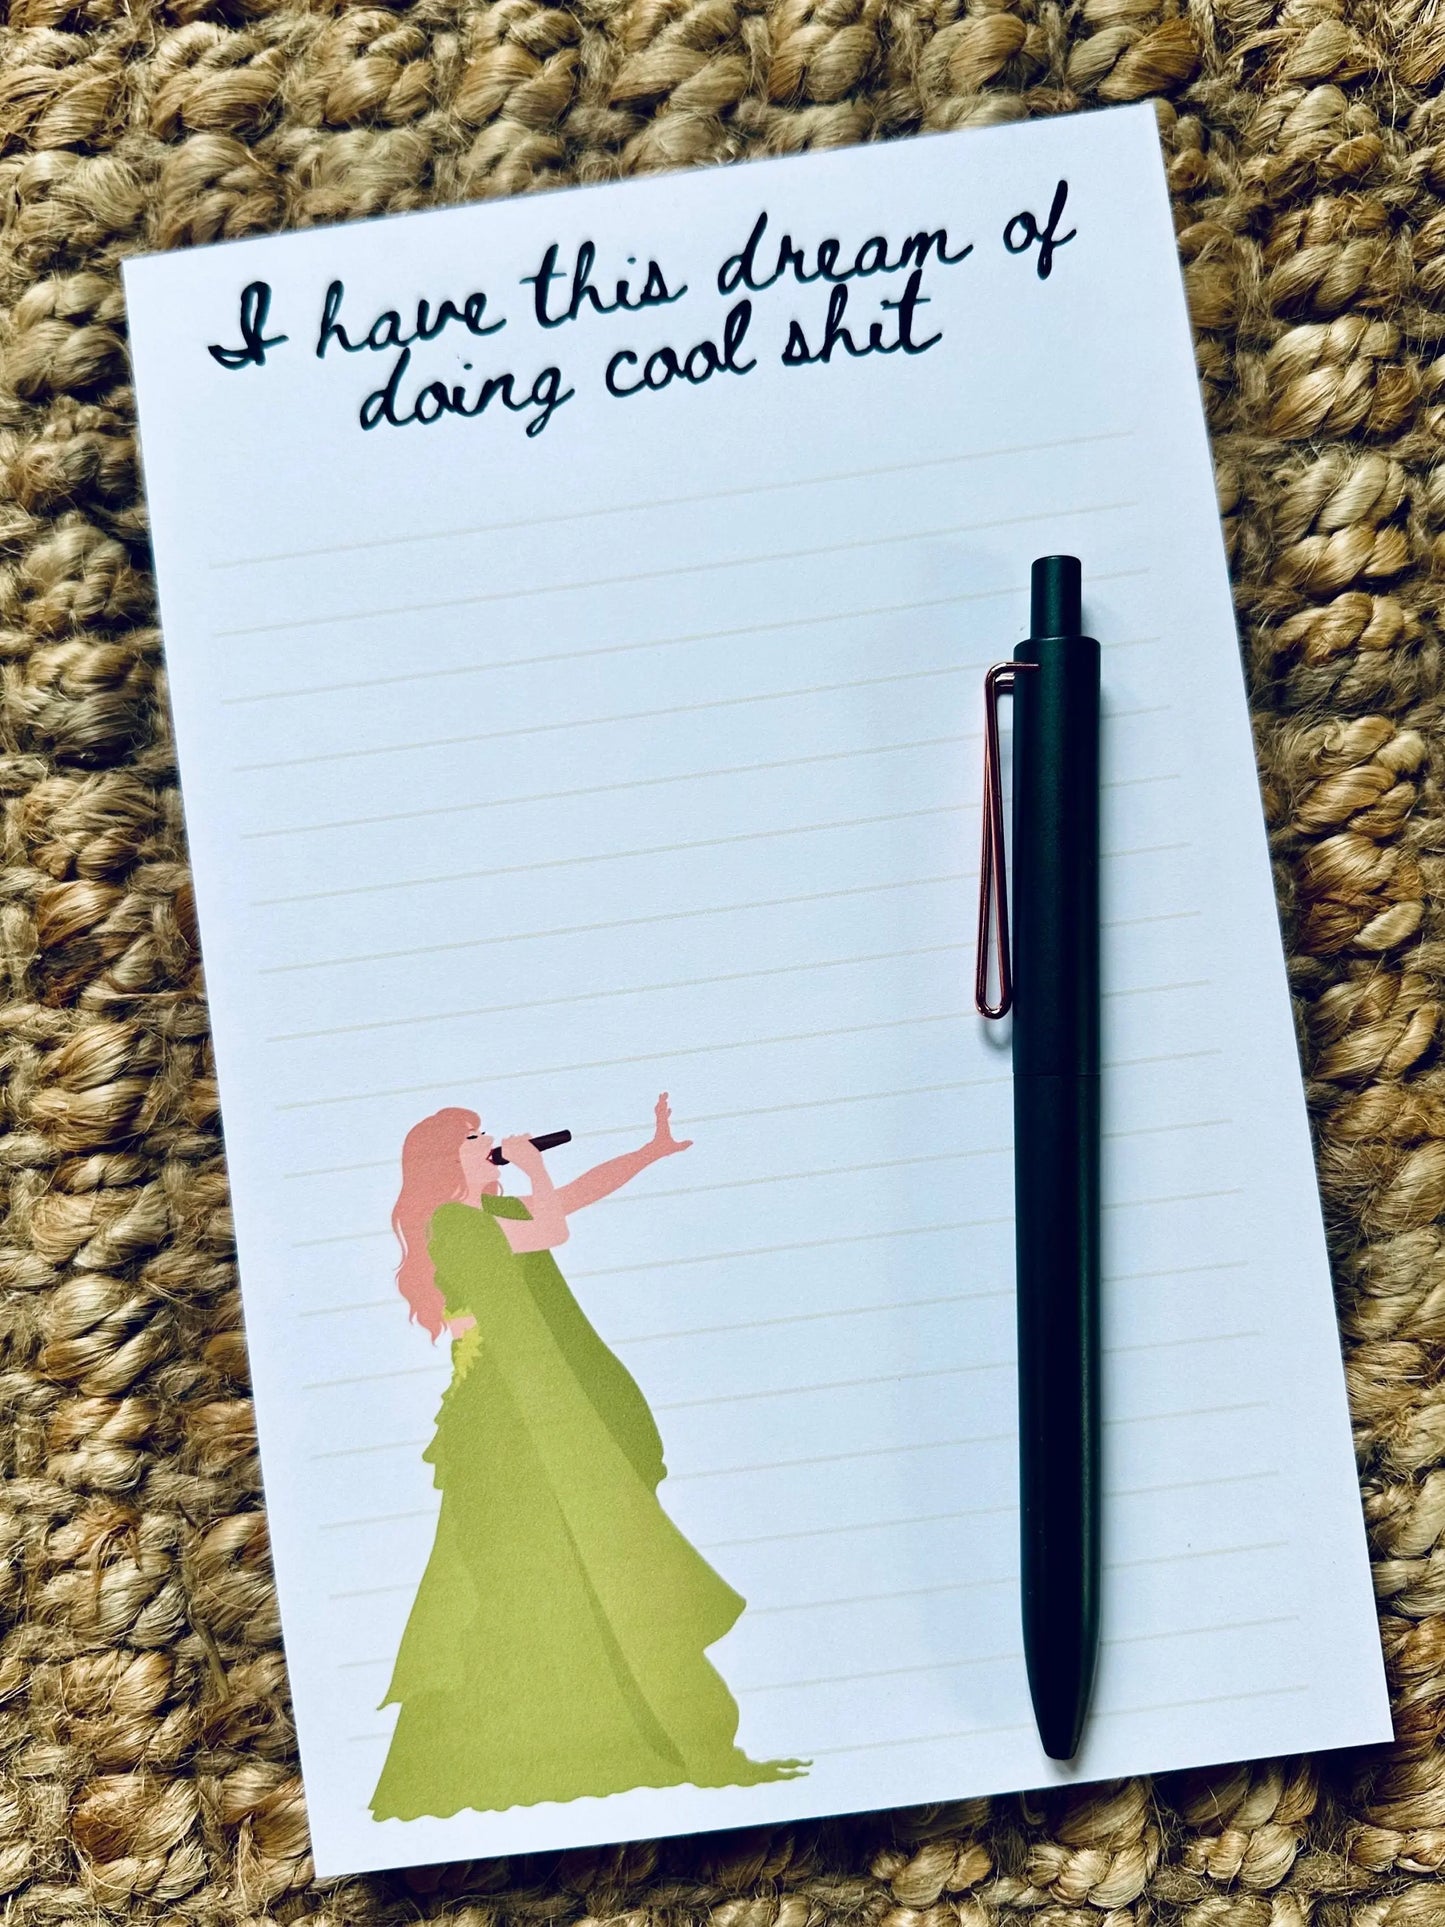 I have this dream of
doing cool shit